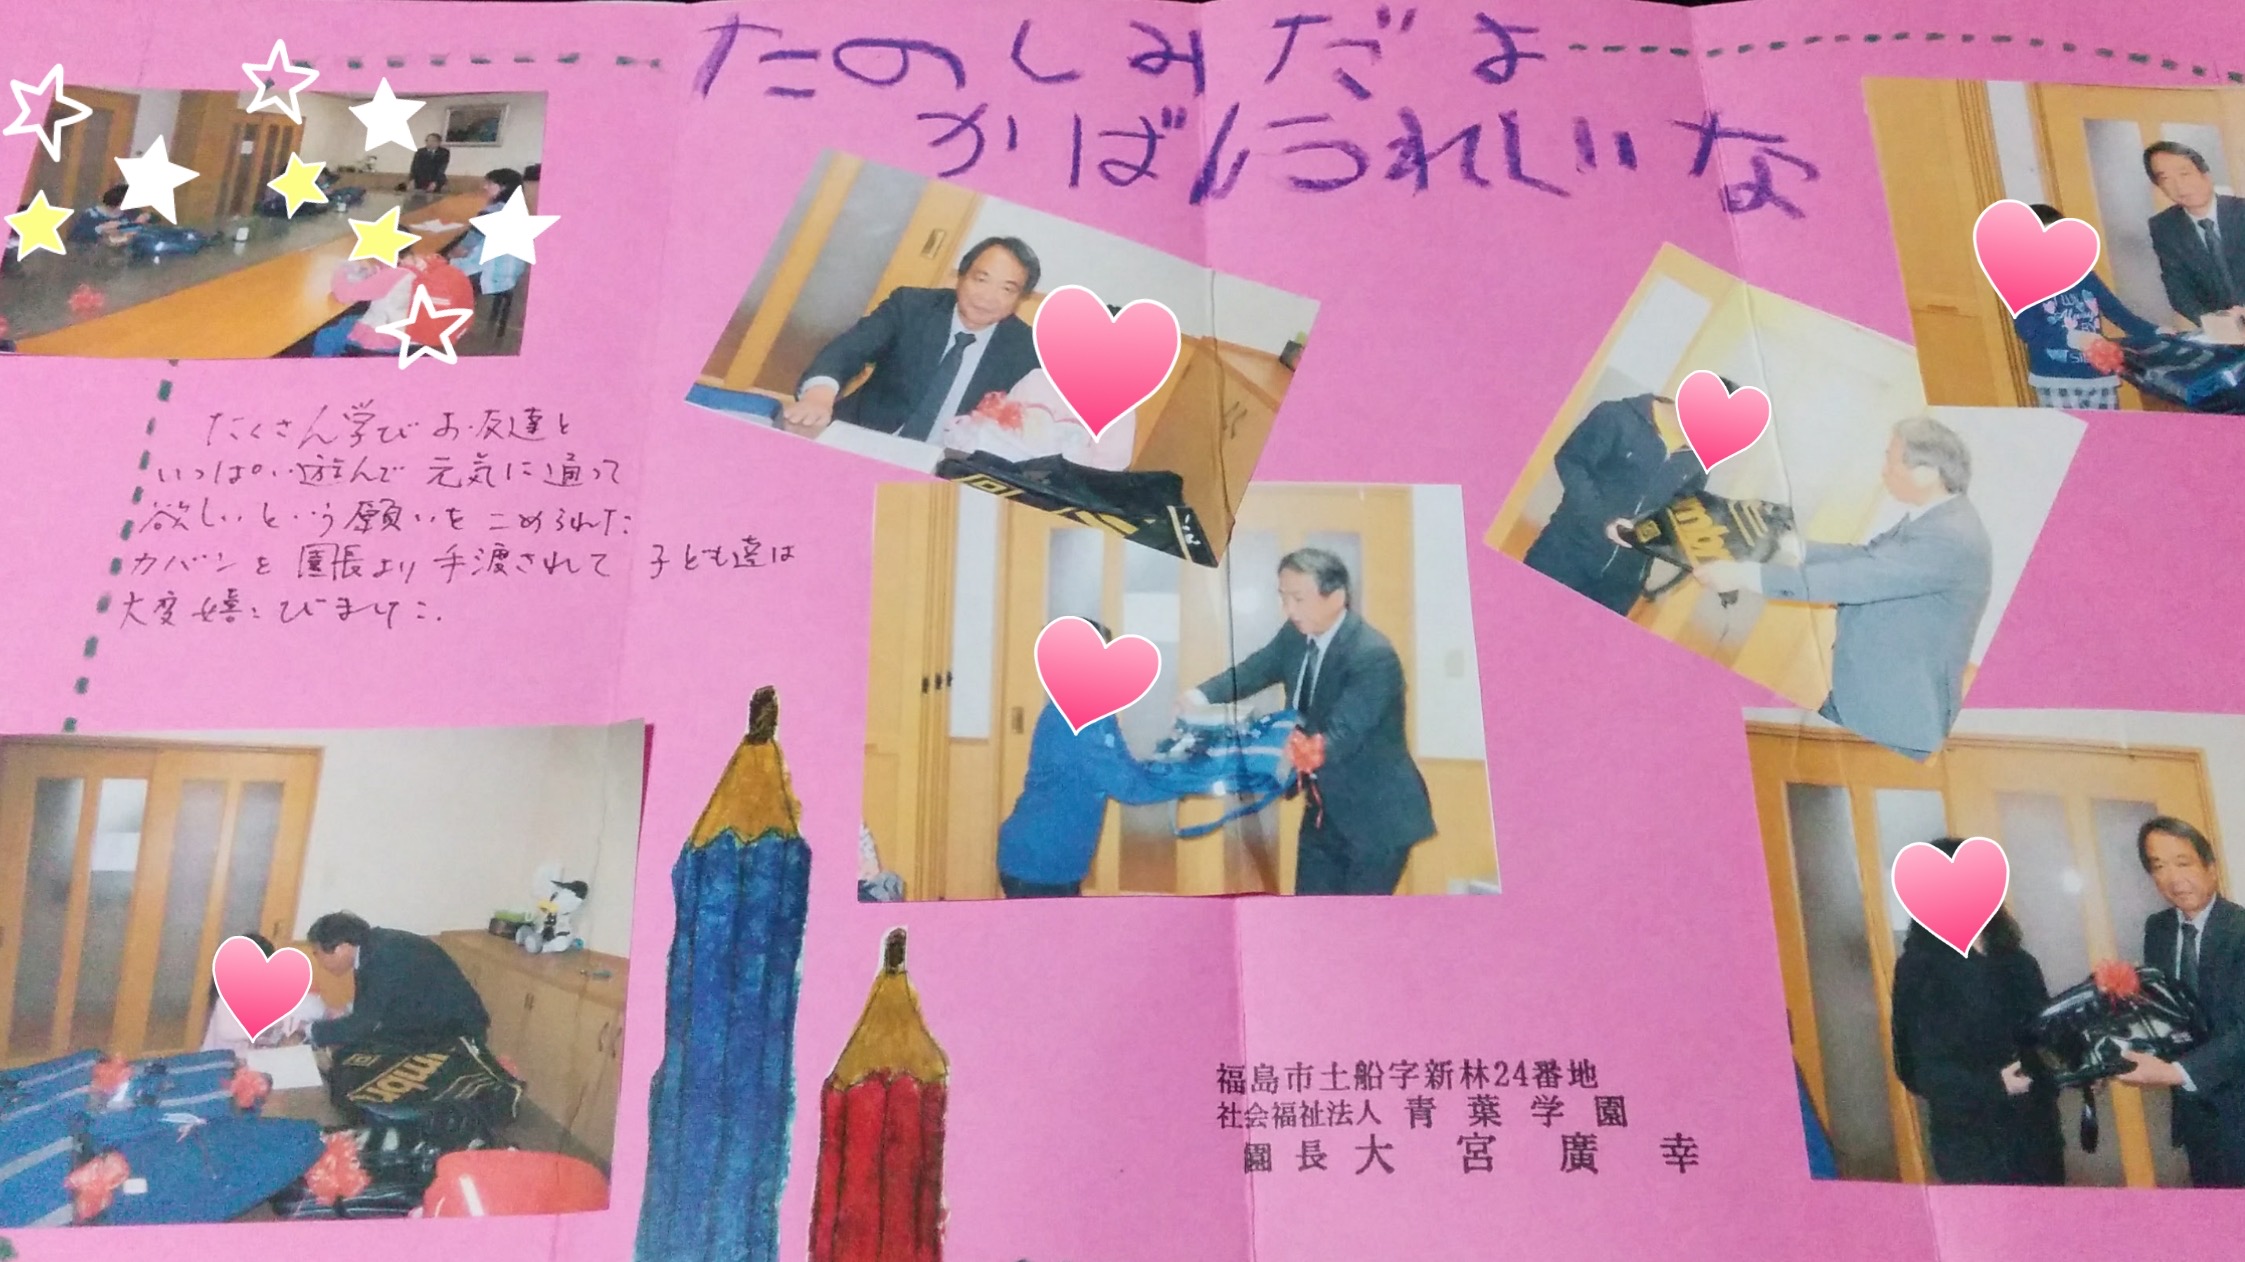 たのしみだよ
かばんうれしいな
たくさん学びお友達と
いっぱい遊んで元気に通って
欲しいという願いをこめられた
カバンを園長より手渡されて子ども達は
大変嬉こびました.
福島市土船字新林24番地
社会福祉法人 青葉学園
園長 大宮廣幸